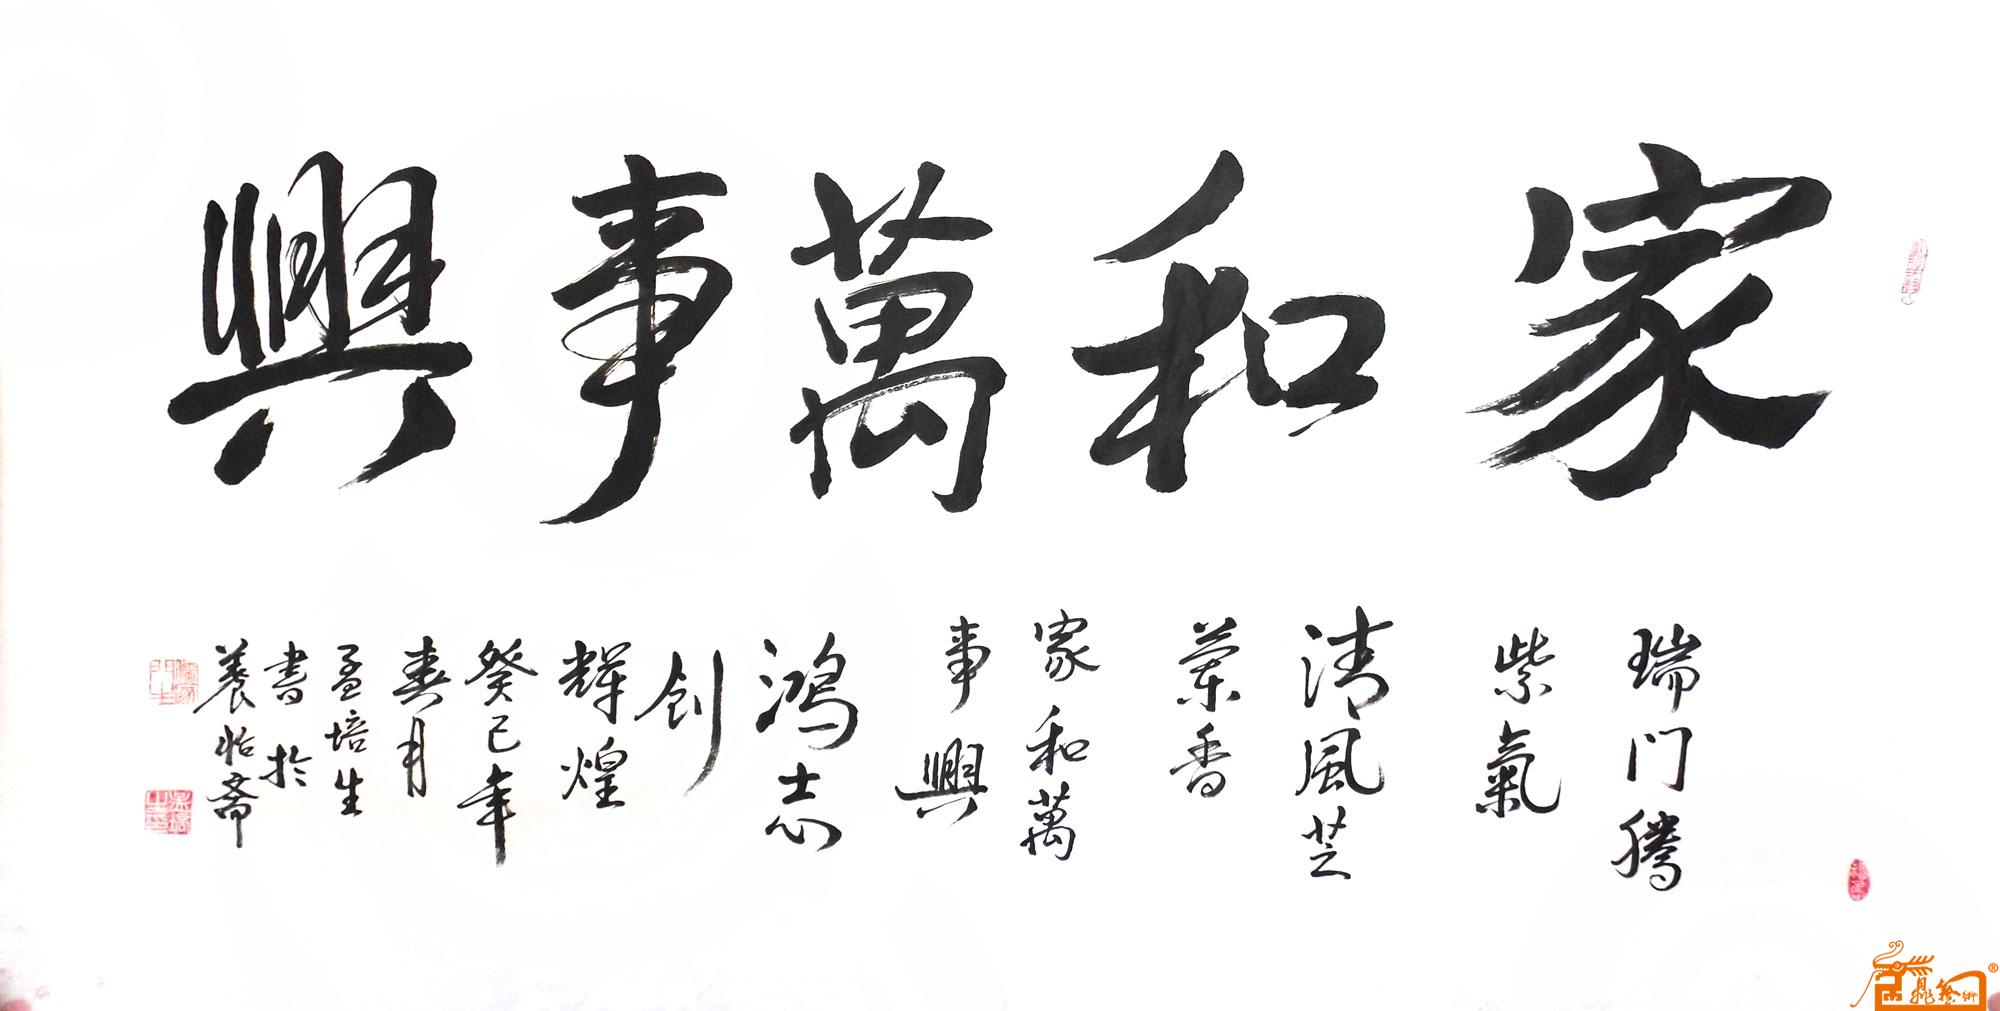 家和萬事興
瑞门腾
紫氣
清風芝
蘭香
家和萬
事興
鸿志
创
輝煌
癸巳年
春月
孟培生
書於
養怡斋